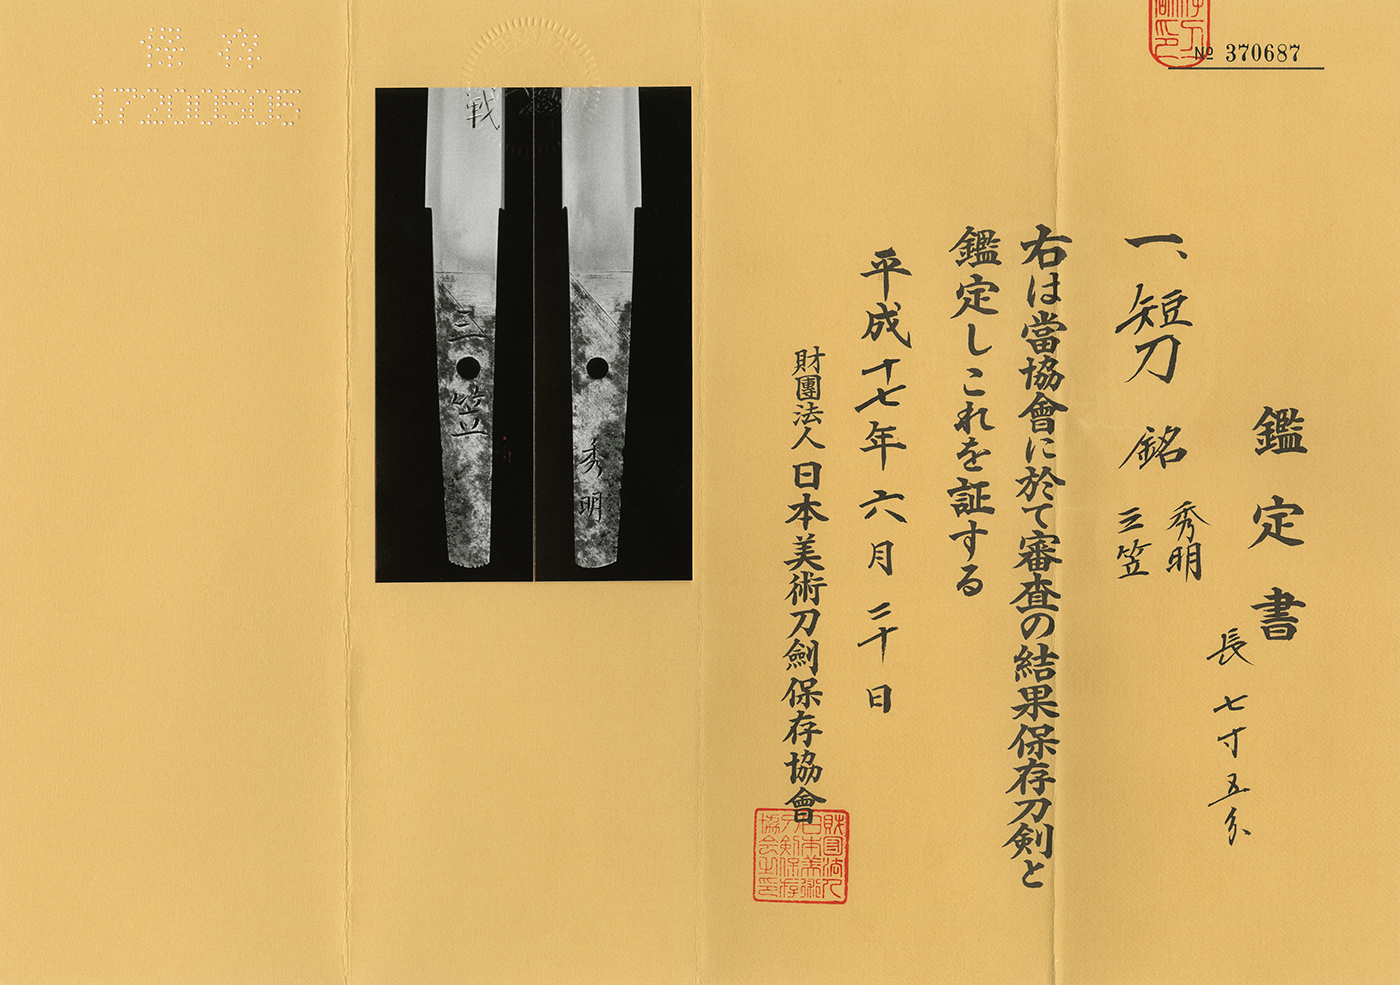 № 370687
鑑定書
一、短刀 銘 秀明
三笠
長七寸五分
右は當協會に於て審査の結果保存刀剣と
鑑定しこれを証する
平成十七年六月二十日
財團法人日本美術刀劍保存協會
財団法人
日本美術
刀剣保存
協会之印
保存
17200505
戦
三笠
秀明